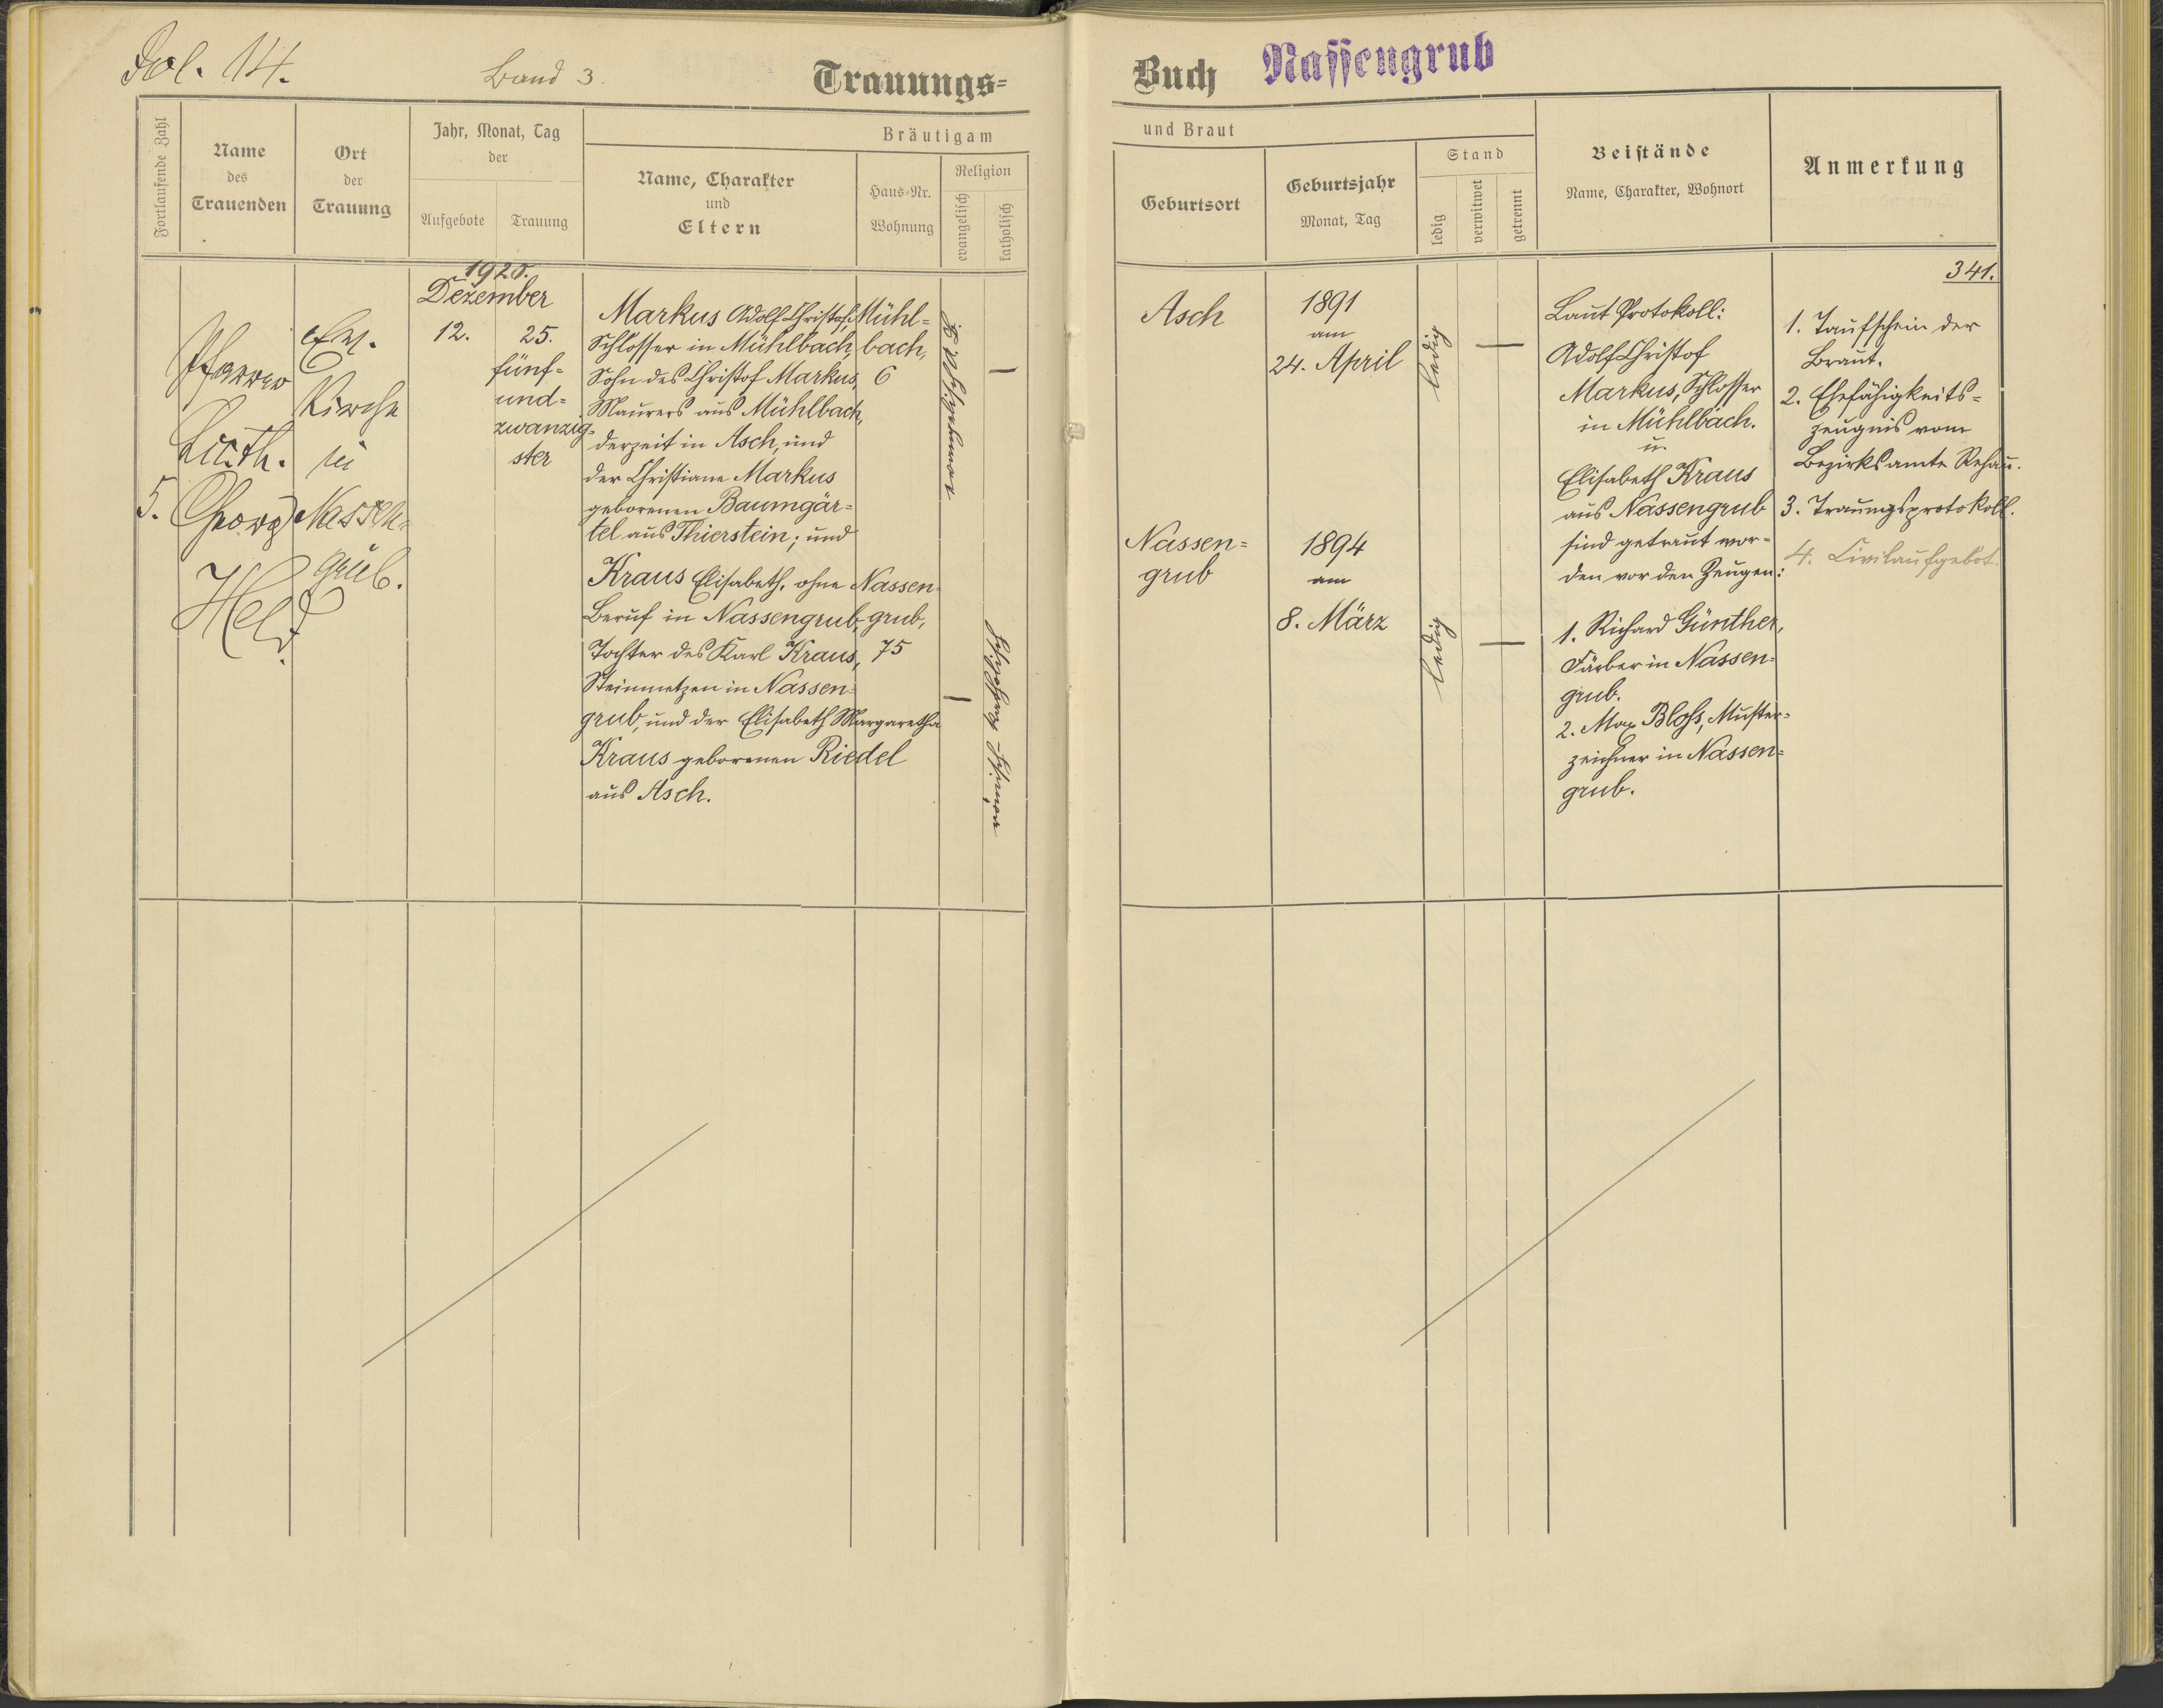 Fol. 14.
Band 3.
Trauungs=
Buch Nassengrub
Fortlaufende Zahl
Name
des
Trauenden
Ort
der
Trauung
Jahr, Monat, Tag
der
Aufgebote
Trauung
Bräutigam
Name, Charakter
und
Eltern
Haus=Nr.
Wohnung
Religion
evangelisch
katholisch
und Braut
Geburtsort
Geburtsjahr
Monat, Tag
Stand
ledig
verwitwet
getrennt
Beistände
Name, Charakter, Wohnort
Anmerkung
5.
Pfarrer
Luth.
Georg
Held
Ev.
Kirche
in
Nassen=
grub.
1920.
Dezember
12.
25.
fünf=
und=
zwanzig=
ster
Markus Adolf Christof,
Schlosser in Mühlbach,
Sohn des Christof Markus,
Maurers aus Mühlbach,
derzeit in Asch, und
der Christiane Markus
geborenen Baumgär=
tel aus Thierstein; und
Kraus Elisabeth, ohne
Beruf in Nassengrub,
Tochter des Karl Kraus,
Steinmetzen in Nassen=
grub, und der Elisabeth Margaretha
Kraus geborenen Riedel
aus Asch.
Mühl=
bach,
6
Nassen=
grub,
75
Asch
1891
am
24. April
ledig
Nassen=
grub
1894
am
8. März
ledig
Laut Protokoll:
Adolf Christof
Markus, Schlosser
in Mühlbach.
u.
Elisabeth Kraus
aus Nassengrub
sind getraut wor=
den vor den Zeugen:
1. Richard Günther,
Färber in Nassen=
grub.
2. Max Bloß, Muster=
zeichner in Nassen=
grub.
341.
1. Taufschein der
Braut.
2. Ehefähigkeits=
zeugnis vom
Bezirksamte Rehau.
3. Trauungsprotokoll.
4. Civilaufgebot.